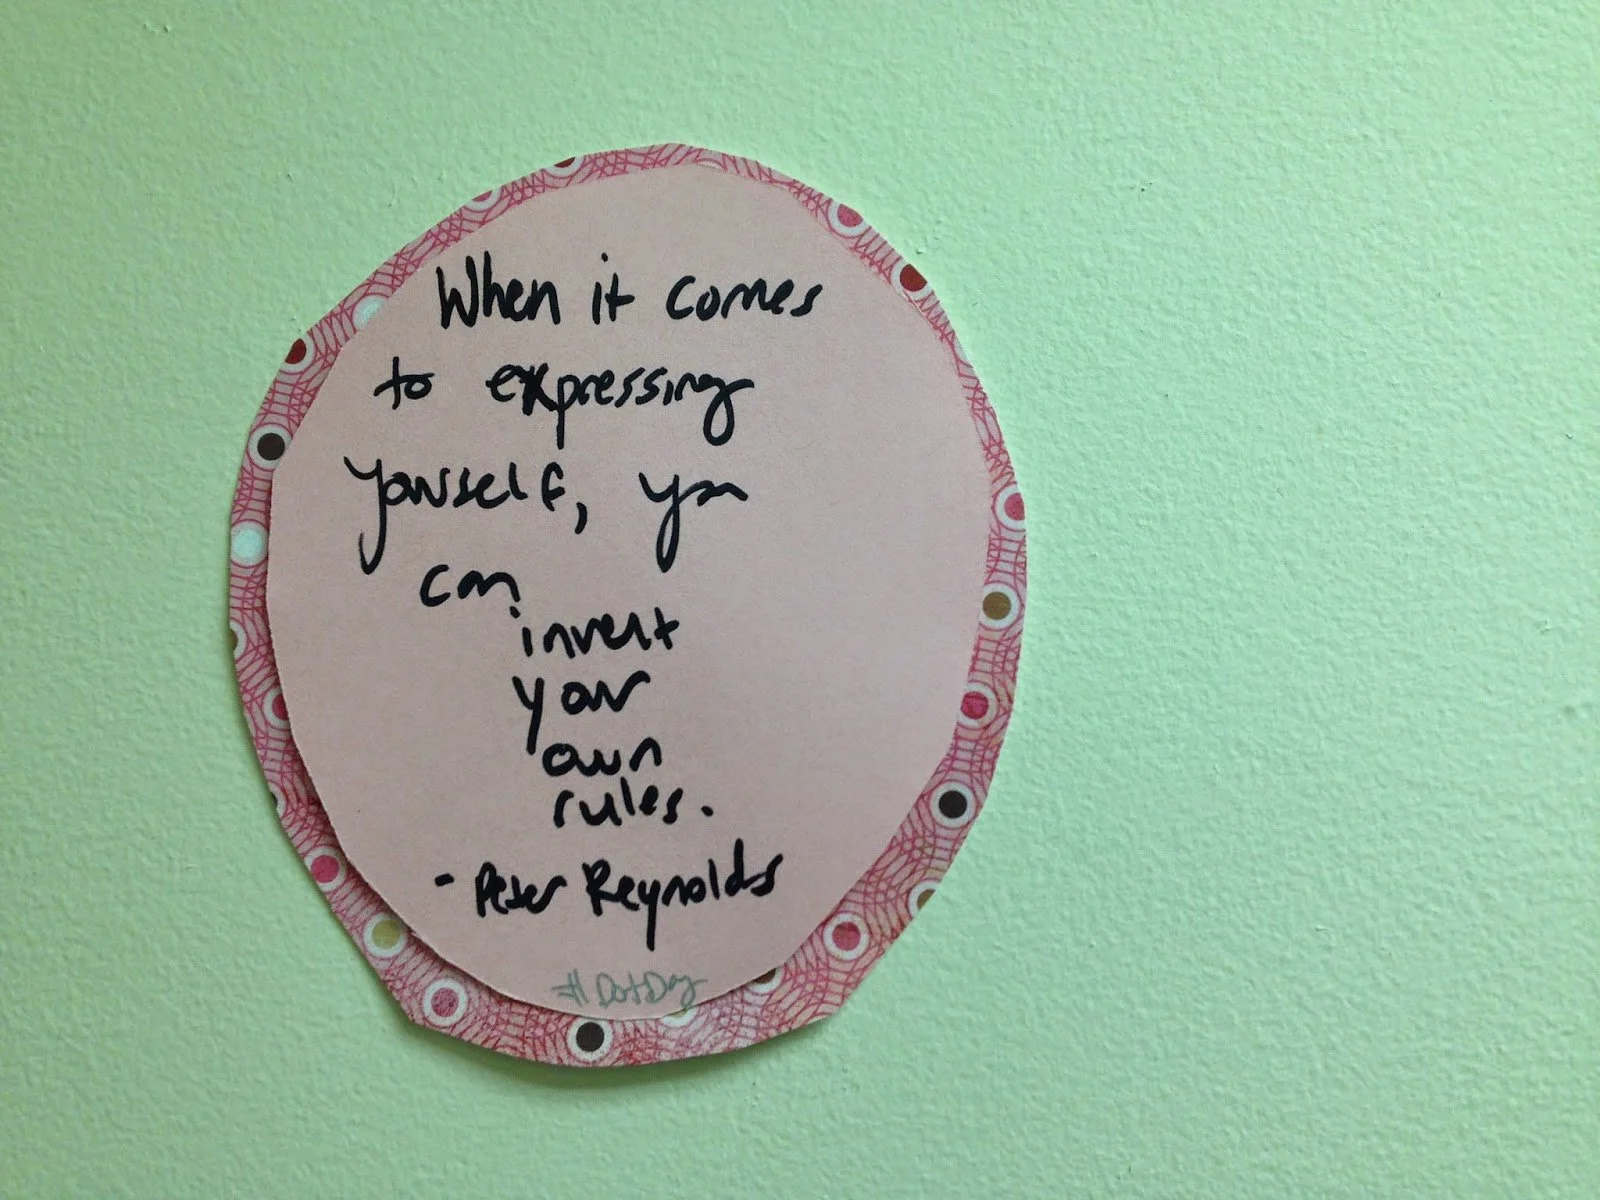 When it comes
to expressing
yourself, you
can
invent
your
own
rules.
- Peter Reynolds
#DotDay